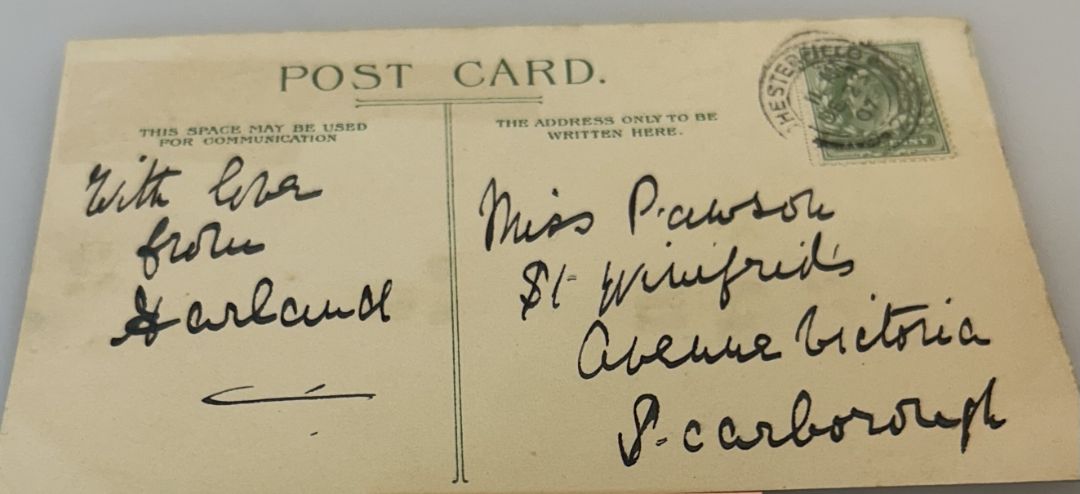 POST CARD.
THIS SPACE MAY BE USED
FOR COMMUNICATION
THE ADDRESS ONLY TO BE
WRITTEN HERE.
HESTERFIELD
07
With love
from
Harland
Miss Pawson
St Winifred's
Avenue Victoria
Scarborough